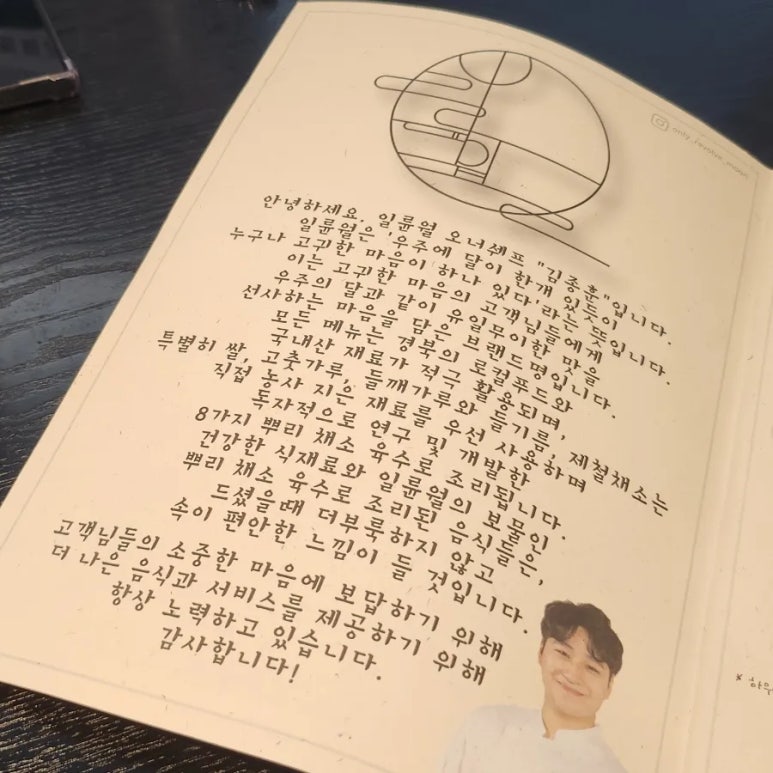 only_revolve_moon
안녕하세요, 일륜월 오너쉐프 "김종훈"입니다.
일륜월은 '우주에 달이 한개 있듯이
누구나 고귀한 마음이 하나 있다'라는 뜻입니다.
이는 고귀한 마음의 고객님들에게
우주의 달과 같이 유일무이한 맛을
선사하는 마음을 담은 브랜드명입니다.
모든 메뉴는 경북의 로컬푸드와
국내산 재료가 적극 활용되며,
특별히 쌀, 고춧가루, 들깨가루와 들기름, 제철채소는
직접 농사 지은 재료를 우선 사용하며
독자적으로 연구 및 개발한
8가지 뿌리 채소 육수로 조리됩니다.
건강한 식재료와 일륜월의 보물인
뿌리 채소 육수로 조리된 음식들은,
드셨을때 더부룩하지 않고
속이 편안한 느낌이 들 것입니다.
고객님들의 소중한 마음에 보답하기 위해
더 나은 음식과 서비스를 제공하기 위해
항상 노력하고 있습니다.
감사합니다!